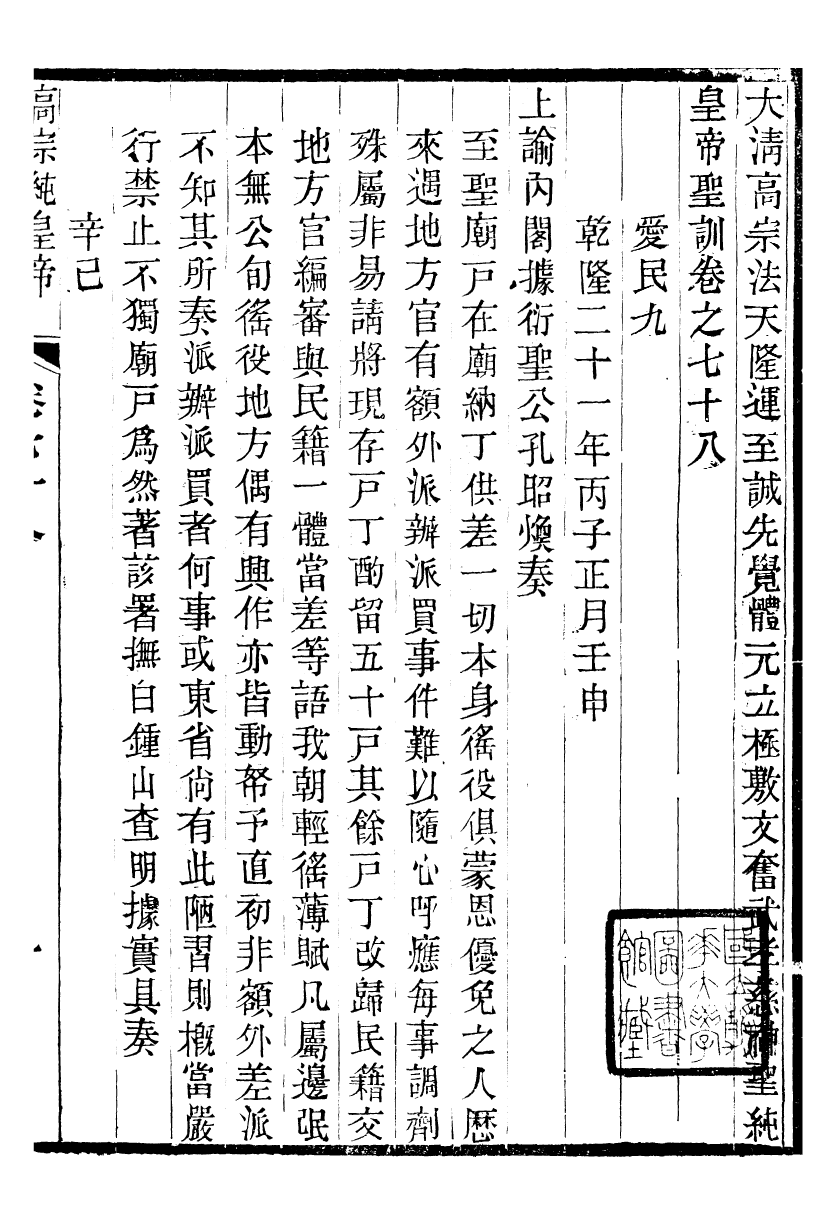 大淸高宗法天隆運至誠先覺體元立極敷文奮武孝慈神聖純
皇帝聖訓卷之七十八
愛民九
乾隆二十一年丙子正月壬申
上諭內閣據衍聖公孔昭煥奏
至聖廟戸在廟納丁供差一切本身徭役俱蒙恩優免之人歷
來遇地方官有額外派辦派買事件難以隨心呼應每事調劑
殊屬非易請將現存戸丁酌留五十戸其餘戸丁改歸民籍交
地方官編審與民籍一體當差等語我朝輕徭薄賦凡屬邊氓
本無公旬徭役地方偶有興作亦皆動帑予直初非額外差派
不知其所奏派辦派買者何事或東省尙有此陋習則概當嚴
行禁止不獨廟戸爲然著該署撫白鍾山查明據實具奏
辛巳
高宗純皇帝
國立清華大學圖書館藏